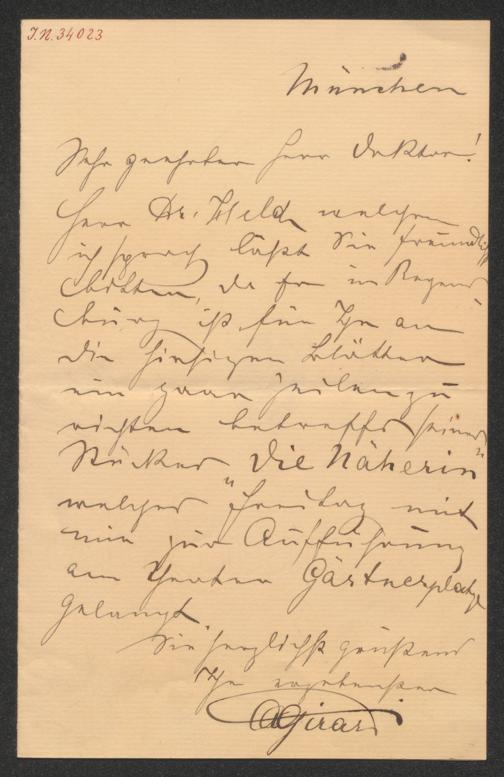 I.N. 34023
München
Sehr geehrter Herr Doktor!
Herr Dr. Held, welchen
ich sprach läßt Sie freundlich
bitten, da er in Regens
burg ist für Ihn an
die hiesigen Blätter
ein paar Zeilen zu
richten betreffs seines
Stückes "Die Näherin"
welches Freitag mit
mir zur Aufführung
am Theater Gärtnerplatze
gelangt.
Sie herzlichst grüßend
Ihr ergebenster
AGirardi